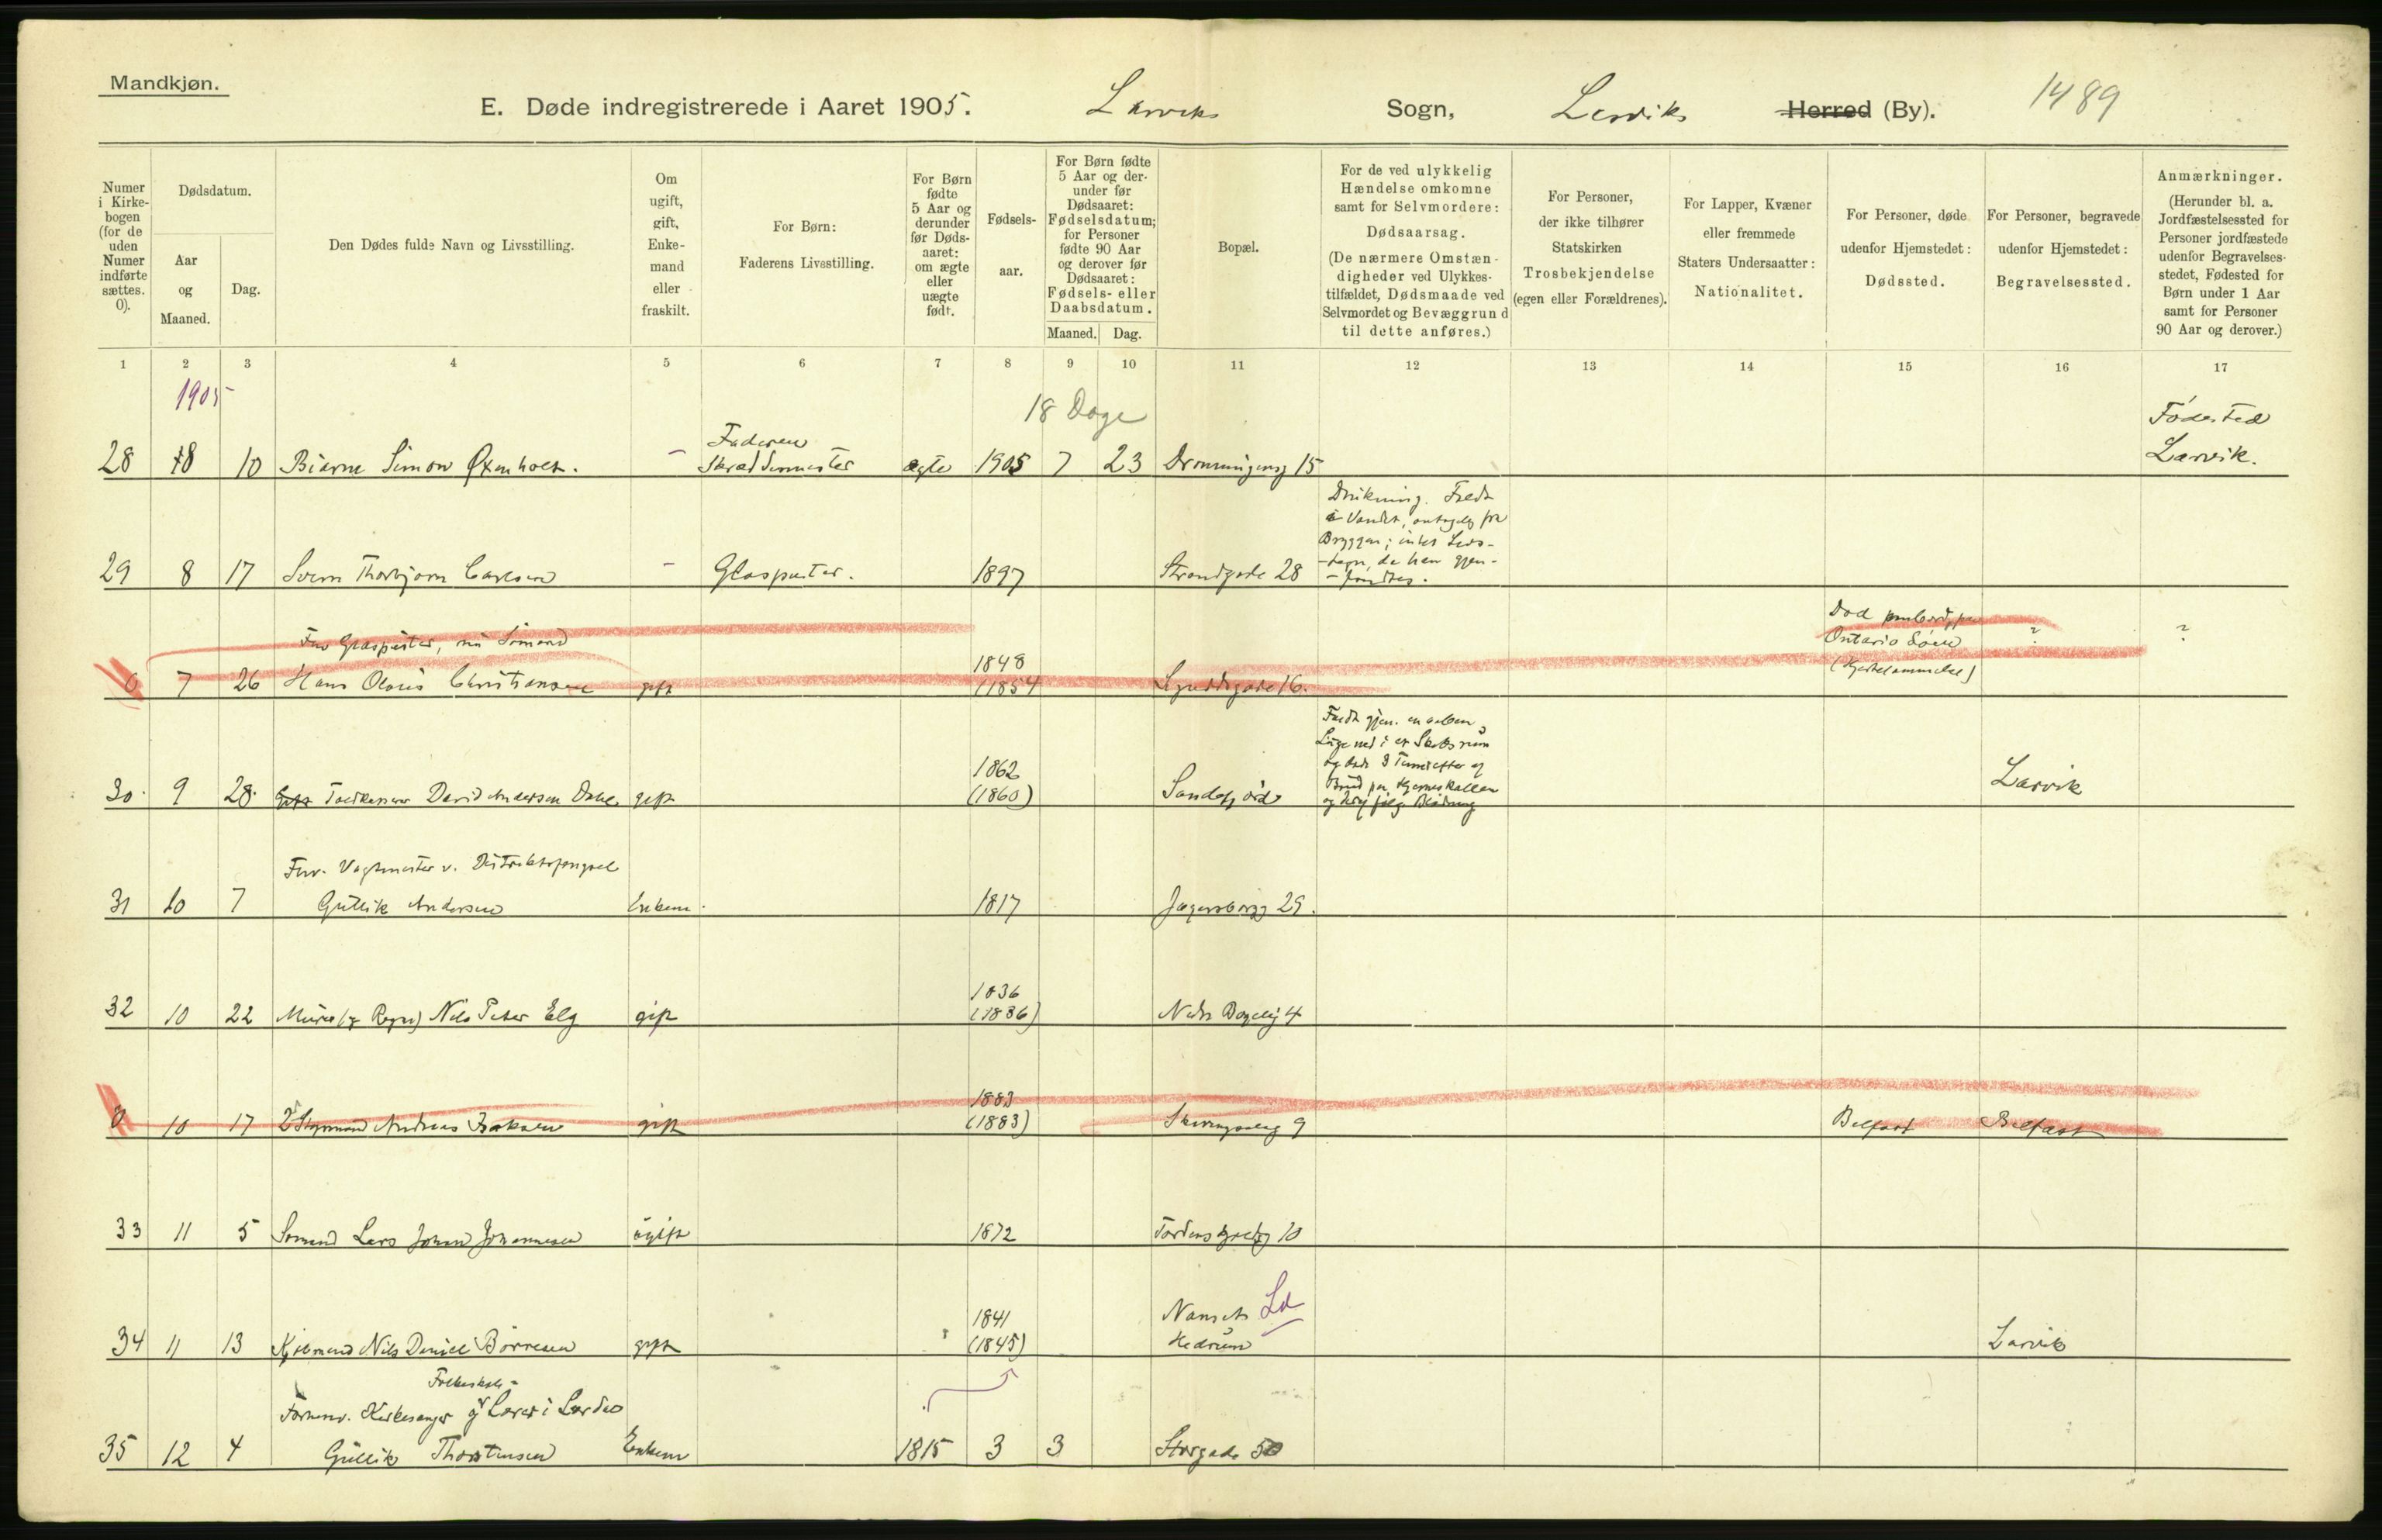 Mandkjøn.
E. Døde indregistrerede i Aaret 1905. Larviks Sogn, Larviks Herred (By). 1489
Numer i Kirke-bogen (for de uden Numer indførte sættes. 0).
Dødsdatum.
Aar og Maaned.
Dag.
Den Dødes fulde Navn og Livsstilling.
Om ugift, gift, Enke-mand eller fraskilt.
For Børn: Faderens Livsstilling.
For Børn fødte 5 Aar og derunder før Døds-aaret: om ægte eller uægte født.
Fødsels-aar.
For Børn fødte 5 Aar og der-under før Dødsaaret: Fødselsdatum; for Personer fødte 90 Aar og derover før Dødsaaret: Fødsels- eller Daabsdatum.
Maaned. Dag.
Bopæl.
For de ved ulykkelig Hændelse omkomne samt for Selvmordere: Dødsaarsag. (De nærmere Omstæn-digheder ved Ulykkes-tilfældet, Dødsmaade ved Selvmordet og Bevæggrund til dette anføres.)
For Personer, der ikke tilhører Statskirken Trosbekjendelse (egen eller Forældrenes).
For Lapper, Kvæner eller fremmede Staters Undersaatter: Nationalitet.
For Personer, døde udenfor Hjemstedet: Dødssted.
For Personer, begravede udenfor Hjemstedet: Begravelsessted.
Anmærkninger. (Herunder bl. a. Jordfæstelsessted for Personer jordfæstede udenfor Begravelses-stedet, Fødested for Børn under 1 Aar samt for Personer 90 Aar og derover.)
1 2 3 4 5 6 7 8 9 10 11 12 13 14 15 16 17
1905
18 Dage
Fødested
Faderen
28 8 10 Bjarne Simon - ægte 1905 7 23 Dronningensg 15 Larvik.
Drukning. Faldt
i Vandet, antagelig fra
Bryggen; intet Livs-
-tegn, da han gjen-
-fandtes.
29 8 17 Svern Thorbjørn Carlsen - Glaspuster. 1897 Strandgade 28
Fhv Glaspuster, nu Sømand
Død ombord, paa
Ontario Søen
(Hjertelammelse)
? ?
1848
0 7 26 Hans Olaus Christiansen gift (1854
16.
Faldt gjen. en aaben
Luge ned i et Skibsrum
og døde 3 Timer efter af
Brud paa Hjerneskallen
og deraf følg. Blødning
1862
30. 9 28. David Andersen gift (1860) Sandefjord Larvik
Fhv. Vagtmester v. Distriktsfængsel
31 10 7 Gullik Andersen Enkem. 1817 29.
1836
32 10 22 Murer Nils Peter Elg gift (1836) 4
1883
0 10 17 2 Styrmand Andreas Isaksen gift (1883) 9 Belfast Belfast
33 11 5 Sømand Lars Johan Johannesen ugift 1872 Tordenskjoldsg 10
Nanset Ld
1841
34 11 13 Nils Daniel Børresen gift (1845) Hedrum Larvik
Folkeskole-
Forhenv. Kirkesanger og Lærer i
35 12 4 Gullik Thorstensen Enkem 1815 3 3 Storgade 50